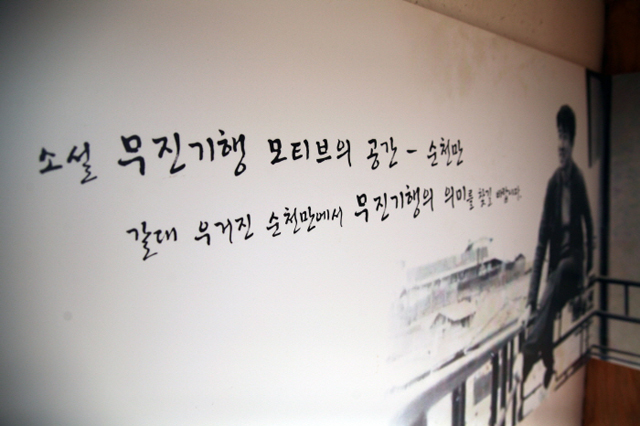 소설 무진기행 모티브의 공간 - 순천만
갈대 우거진 순천만에서 무진기행의 의미를 찾길 바랍니다.